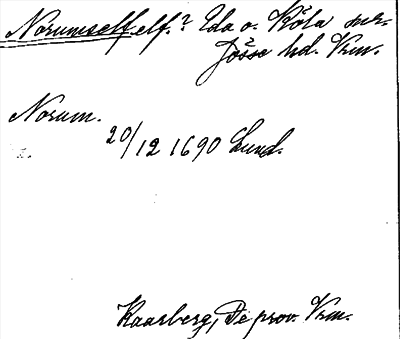 Norumself elf.? Eda o. Köla snr
Jösse hd. Vrm.
Norum.
20/12 1690 Lund.
Kaarberg, De prov. Vrm.